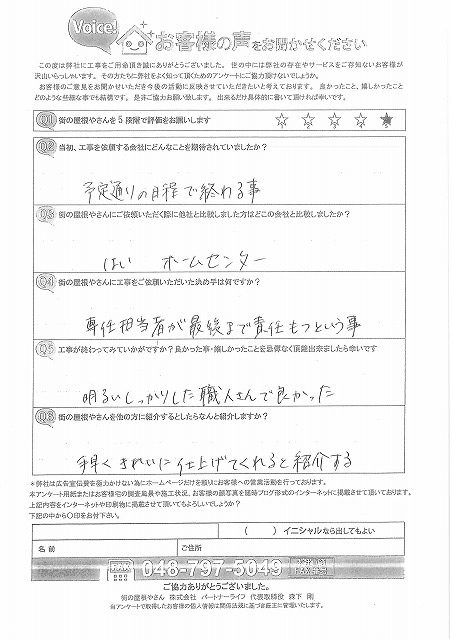 Voice!
お客様の声をお聞かせください
この度は弊社に工事をご用命頂き誠にありがとうございました。世の中には弊社の存在やサービスをご存知ないお客様が
沢山いらっしゃいます。その方たちに弊社をよく知って頂くためのアンケートにご協力頂けないでしょうか。
お客様のご意見をお聞かせいただき今後の活動に反映させていただきたいと考えております。良かったこと、嬉しかったこと
どのような些細な事でも結構です。是非ご協力お願い致します。出来るだけ具体的に書いて頂ければ幸いです。
Q1 街の屋根やさんを5段階で評価をお願いします ☆ ☆ ☆ ☆ ★
Q2 当初、工事を依頼する会社にどんなことを期待されていましたか?
予定通りの日程で終わる事
Q3 街の屋根やさんにご依頼いただく際に他社と比較しました方はどこの会社と比較しましたか?
はい ホームセンター
Q4 街の屋根やさんに工事をご依頼いただいた決め手は何ですか?
専任担当者が最後まで責任もつという事
Q5 工事が終わってみていかがですか?良かった事・嬉しかったことを忌憚なく頂戴出来ましたら幸いです
明るいしっかりした職人さんで良かった
Q6 街の屋根やさんを他の方に紹介するとしたらなんと紹介しますか?
手早くきれいに仕上げてくれると紹介する
*弊社は広告宣伝費を極力かけない為にホームページだけを頼りにお客様への営業活動を行っております。
本アンケート用紙またはお客様宅の調査風景や施工状況、お客様の顔写真を随時ブログ形式のインターネットに掲載させて頂いております。
上記内容をインターネットや印刷物に掲載させて頂いてもよろしいでしょうか?
下記の中から○印をお付下さい。
( ) イニシャルなら出してもよい
名前 ご住所
048-797-5049
ご協力ありがとうございました。
街の屋根やさん 株式会社 パートナーライフ 代表取締役 森下 剛
当アンケートで取得したお客様の個人情報は関係法規に基づき厳正に管理いたします。